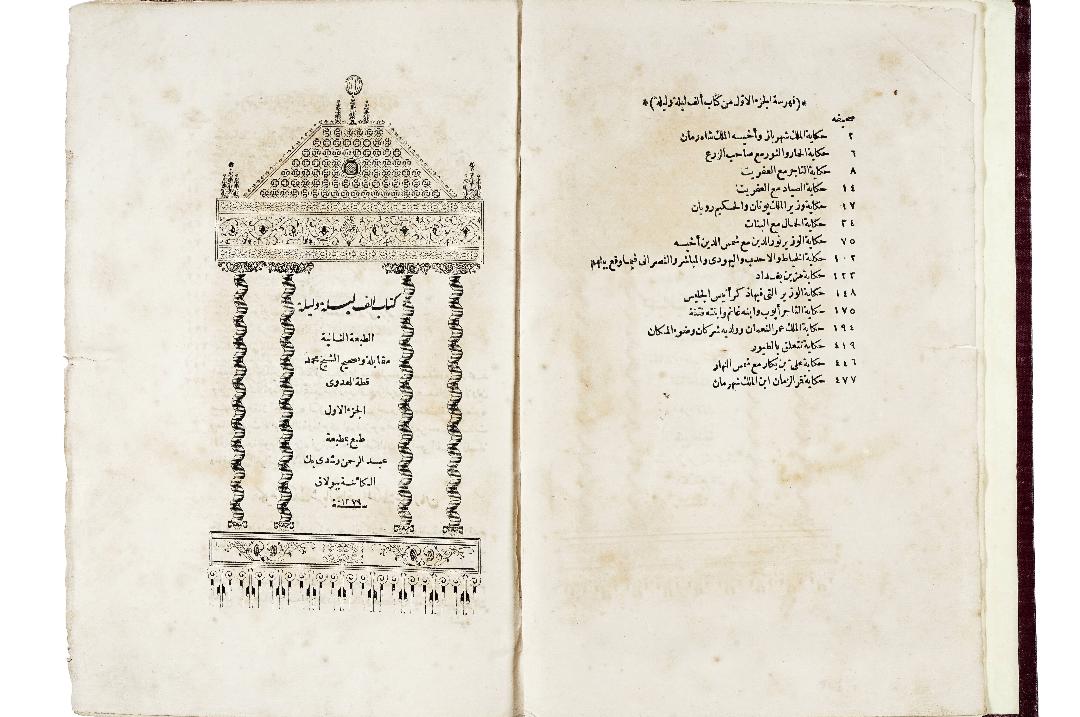 *(فهرسة الجزء الاول من كتاب ألف ليلة وليلة)*
صحيفه
٢ حكاية الملك شهرباز وأخيه الملك شاه زمان
٦ حكاية الحمار والثور مع صاحب الزرع
٨ حكاية التاجر مع العفريت
١٤ حكاية الصياد مع العفريت
١٧ حكاية وزير الملك يونان والحكيم رويان
٢٤ حكاية الحمال مع البنات
٧٥ حكاية الوزير نور الدين مع شمس الدين أخيه
١٠٢ حكاية الخياط والاحدب واليهودى والمباشر والنصرانى فيما وقع بينهم
١٢٣ حكاية مزين بغداد
١٤٨ حكاية الوزير التى فيها ذكر أنيس الجليس
١٧٥ حكاية التاجر أيوب وابنه غانم وابنته فتنة
١٩٤ حكاية الملك عمر النعمان وولديه شركان وضوء المكان
٤١٩ حكاية تتعلق بالطيور
٤٤٦ حكاية على بن بكار مع شمس النهار
٤٧٧ حكاية قمر الزمان ابن الملك شهرمان
كتاب الف ليلة وليلة
الطبعة الثانية
مقابلة وتصحيح الشيخ محمد
قطة العدوى
الجزء الاول
طبع بمطبعة
عبد الرحمن رشدى بك
الكائنة ببولاق
سنة ١٢٧٩